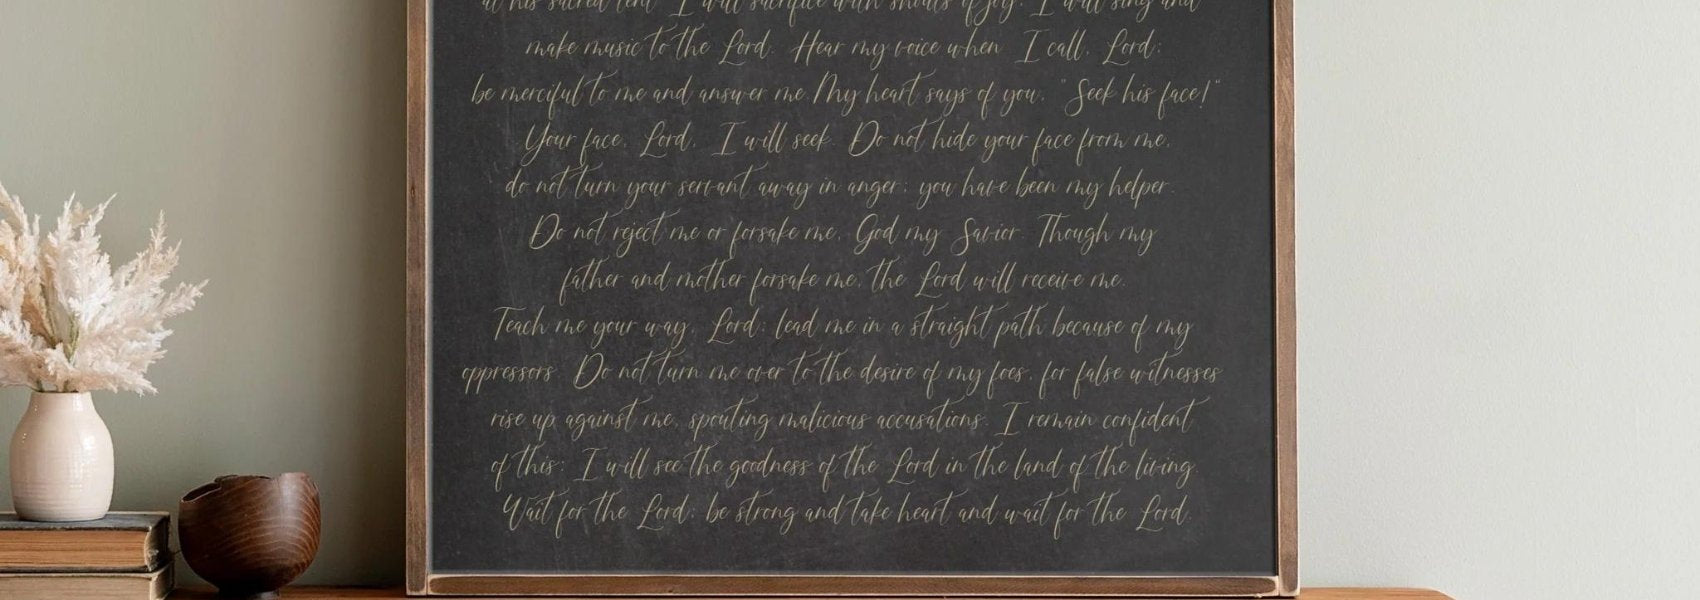 at his sacred tent I will sacrifice with shouts of joy; I will sing and
make music to the Lord. Hear my voice when I call, Lord;
be merciful to me and answer me. My heart says of you, "Seek his face!"
Your face, Lord, I will seek. Do not hide your face from me,
do not turn your servant away in anger; you have been my helper.
Do not reject me or forsake me, God my Savior. Though my
father and mother forsake me, the Lord will receive me.
Teach me your way, Lord; lead me in a straight path because of my
oppressors. Do not turn me over to the desire of my foes, for false witnesses
rise up against me, spouting malicious accusations. I remain confident
of this: I will see the goodness of the Lord in the land of the living.
Wait for the Lord; be strong and take heart and wait for the Lord.